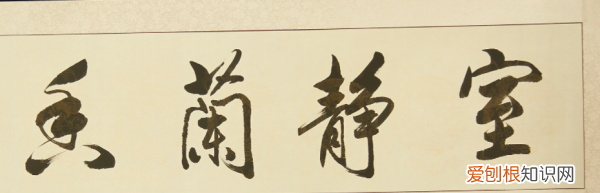 室静蘭香
爱刨根知识网